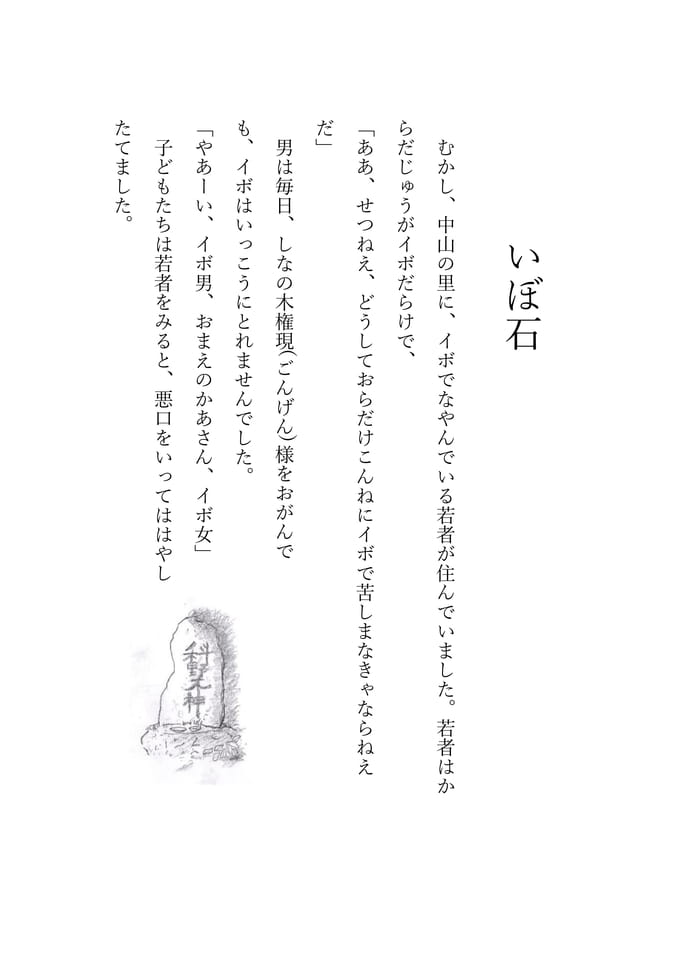 いぼ石
むかし、中山の里に、イボでなやんでいる若者が住んでいました。若者はか
らだじゅうがイボだらけで、
「ああ、せつねえ、どうしておらだけこんねにイボで苦しまなきゃならねえ
だ」
男は毎日、しなの木権現(ごんげん)様をおがんで
も、イボはいっこうにとれませんでした。
「やあーい、イボ男、おまえのかあさん、イボ女」
子どもたちは若者をみると、悪口をいってははやし
たてました。
科野大神